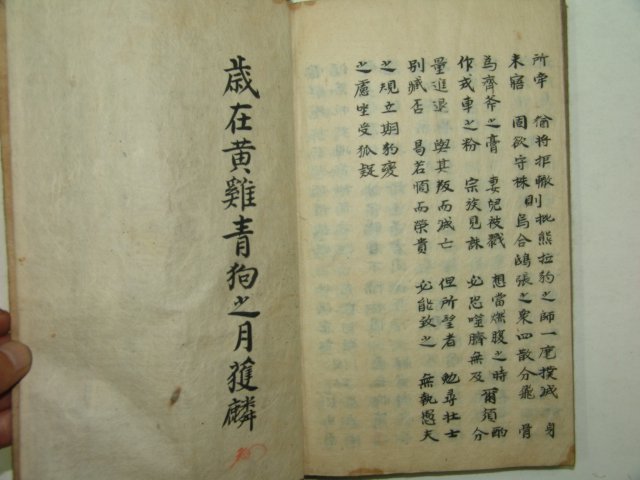 所牵 偷將拒轍則批熊拉豹之師一麾撲滅 身
未寤 固欲守株則烏合鴟張之衆四散分飛 骨
為齊斧之膏 妻兒被戮 想當燃腹之時 爾須酌
作戎車之粉 宗族見誅 必恐噬臍無及 分
量進退 與其叛而滅亡 但所望者 勉尋壯士
別臧否 曷若順而榮貴 必能致之 無執愚夫
之規立期豹變
之慮坐受狐疑
歲在黄雞青狗之月獲麟